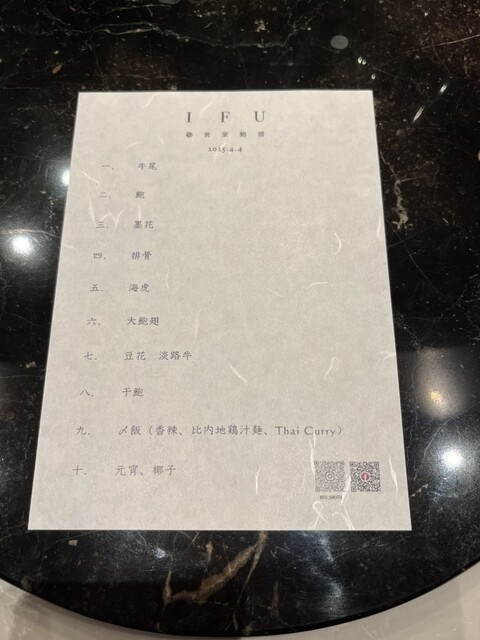 I F U
2025.4.4
一、 牛尾
二、 鮑
三、 墨花
四、 排骨
五、 海虎
六、 大鮑翅
七、 豆花 淡路牛
八、 干鮑
九、 〆飯（香辣、比内地鶏汁麺、Thai Curry）
十、 元宵、椰子